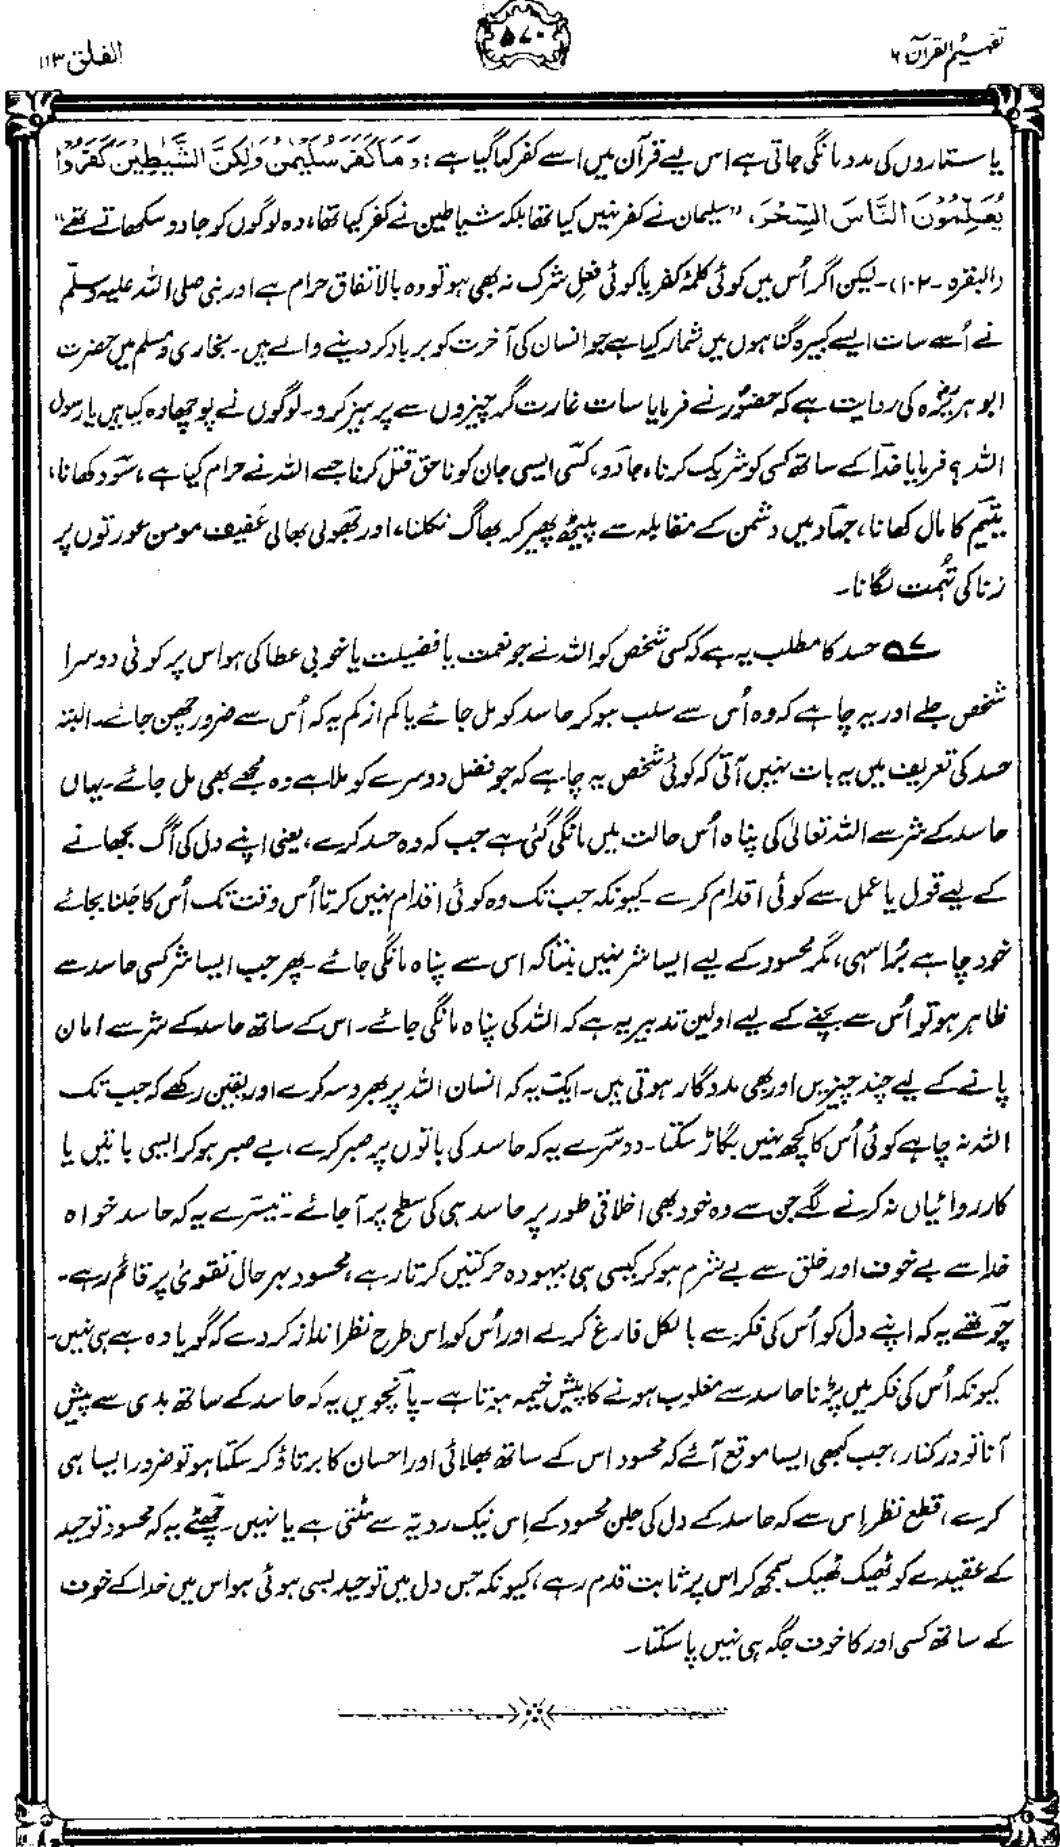 تفہیم القرآن ۶
۵۷۰
الفلق ۱۱۳
یا ستاروں کی مدد مانگی جاتی ہے اس لیے قرآن میں اسے کفر کہا گیا ہے: وَمَا كَفَرَ سُلَيْمٰنُ وَلٰكِنَّ الشَّيٰطِيْنَ كَفَرُوْا
يُعَلِّمُوْنَ النَّاسَ السِّحْرَ، ”سلیمان نے کفر نہیں کیا تھا بلکہ شیاطین نے کفر کیا تھا، وہ لوگوں کو جادو سکھاتے تھے“
(البقرہ - ۱۰۲)۔ لیکن اگر اُس میں کوئی کلمۂ کفر یا کوئی فعلِ شرک نہ بھی ہو تو وہ بالاتفاق حرام ہے اور نبی صلی اللہ علیہ وسلّم
نے اُسے سات ایسے کبیرہ گناہوں میں شمار کیا ہے جو انسان کی آخرت کو برباد کر دینے والے ہیں۔ بخاری و مسلم میں حضرت
ابو ہریرؓہ کی روایت ہے کہ حضورؐ نے فرمایا سات غارت گر چیزوں سے پرہیز کرو۔ لوگوں نے پوچھا وہ کیا ہیں یا رسول
اللہ؟ فرمایا خدا کے ساتھ کسی کو شریک کرنا، جادو، کسی ایسی جان کو ناحق قتل کرنا جسے اللہ نے حرام کیا ہے، سود کھانا،
یتیم کا مال کھانا، جہاد میں دشمن کے مقابلہ سے پیٹھ پھیر کر بھاگ نکلنا، اور بھولی بھالی عَفیف مومن عورتوں پر
زنا کی تُہمت لگانا۔
۵؎ حسد کا مطلب یہ ہے کہ کسی شخص کو اللہ نے جو نعمت یا فضیلت یا خوبی عطا کی ہو اس پر کوئی دوسرا
شخص جلے اور یہ چاہے کہ وہ اُس سے سلب ہو کر حاسد کو مل جائے یا کم از کم یہ کہ اُس سے ضرور چھن جائے۔ البتہ
حسد کی تعریف میں یہ بات نہیں آتی کہ کوئی شخص یہ چاہے کہ جو فضل دوسرے کو ملا ہے وہ مجھے بھی مل جائے۔ یہاں
حاسد کے شر سے اللہ تعالیٰ کی پناہ اُس حالت میں مانگی گئی ہے جب کہ وہ حسد کرے، یعنی اپنے دل کی آگ بجھانے
کے لیے قول یا عمل سے کوئی اقدام کرے۔ کیونکہ جب تک وہ کوئی اقدام نہیں کرتا اُس وقت تک اُس کا جَلنا بجائے
خود چاہے بُرا سہی، مگر محسود کے لیے ایسا شر نہیں بنتا کہ اس سے پناہ مانگی جائے۔ پھر جب ایسا شر کسی حاسد سے
ظاہر ہو تو اُس سے بچنے کے لیے اولین تدبیر یہ ہے کہ اللہ کی پناہ مانگی جائے۔ اس کے ساتھ حاسد کے شر سے امان
پانے کے لیے چند چیزیں اور بھی مددگار ہوتی ہیں۔ ایک یہ کہ انسان اللہ پر بھروسہ کرے اور یقین رکھے کہ جب تک
اللہ نہ چاہے کوئی اُس کا کچھ نہیں بگاڑ سکتا۔ دوسرے یہ کہ حاسد کی باتوں پر صبر کرے، بے صبر ہو کر ایسی باتیں یا
کارروائیاں نہ کرنے لگے جن سے وہ خود بھی اخلاقی طور پر حاسد ہی کی سطح پر آ جائے۔ تیسرے یہ کہ حاسد خواہ
خدا سے بے خوف اور خلق سے بے شرم ہو کر کیسی ہی بیہودہ حرکتیں کرتا رہے، محسود بہرحال تقویٰ پر قائم رہے۔
چوتھے یہ کہ اپنے دل کو اُس کی فکر سے بالکل فارغ کر لے اور اُس کو اِس طرح نظر انداز کر دے کہ گویا وہ ہے ہی نہیں۔
کیونکہ اُس کی فکر میں پڑنا حاسد سے مغلوب ہونے کا پیش خیمہ ہوتا ہے۔ پانچویں یہ کہ حاسد کے ساتھ بدی سے پیش
آنا تو درکنار، جب کبھی ایسا موقع آئے کہ محسود اس کے ساتھ بھلائی اور احسان کا برتاؤ کر سکتا ہو تو ضرور ایسا ہی
کرے، قطع نظر اِس سے کہ حاسد کے دل کی جلن محسود کے اِس نیک رویّہ سے مٹتی ہے یا نہیں۔ چھٹے یہ کہ محسود توحید
کے عقیدے کو ٹھیک ٹھیک سمجھ کر اس پر ثابت قدم رہے، کیونکہ جس دل میں توحید بسی ہوئی ہو اس میں خدا کے خوف
کے ساتھ کسی اور کا خوف جگہ ہی نہیں پا سکتا۔